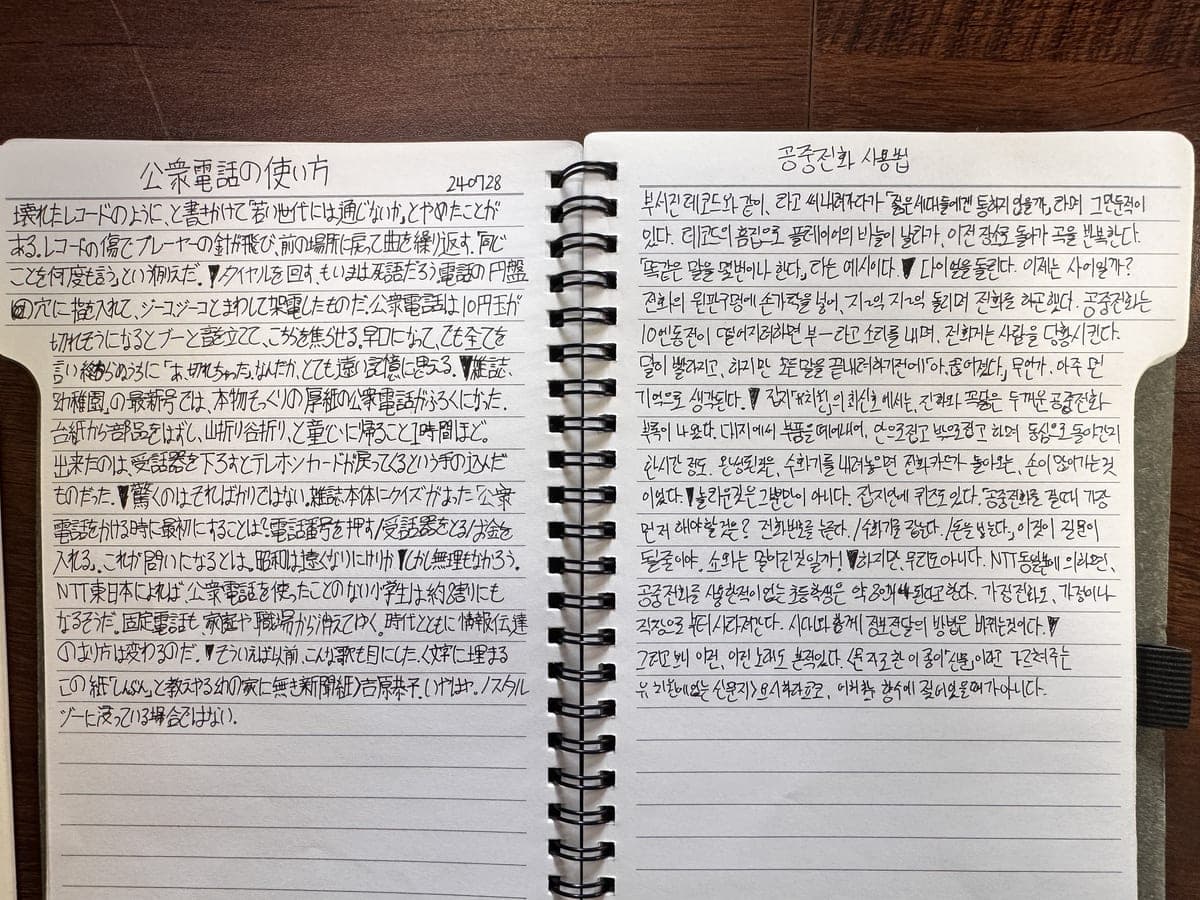 公衆電話の使い方
240728
壊れたレコードのように、と書きかけて「若い世代には通じないか」とやめたことが
ある。レコードの傷でプレーヤーの針が飛び、前の場所に戻って曲を繰り返す。「同じ
ことを何度も言う」という例えだ。▼ダイヤルを回す、もいまは死語だろう。電話の円盤
の穴に指を入れて、ジーコジーコとまわして架電したものだ。公衆電話は10円玉が
切れそうになるとブーと音を立てて、こちらを焦らせる。早口になって、でも全てを
言い終わらぬうちに「あ、切れちゃった」。なんだか、とても遠い記憶に思える。▼雑誌、
幼稚園」の最新号では、本物そっくりの厚紙の公衆電話がふろくになった。
台紙から部品をはずし、山折り谷折り、と童心に帰ること1時間ほど。
出来たのは、受話器を下ろすとテレホンカードが戻ってくるという手の込んだ
ものだった。▼驚くのはそればかりではない。雑誌本体にクイズがあった「公衆
電話をかける時に最初にすることは?電話番号を押す/受話器をとる/お金を
入れる」。これが問いになるとは。昭和は遠くなりにけりか▼しかし無理もなかろう。
NTT東日本によれば、公衆電話を使ったことのない小学生は約8割にも
なるそうだ。固定電話も、家庭や職場から消えてゆく。時代とともに情報伝達
のあり方は変わるのだ。▼そういえば以前、こんな歌も目にした。〈文字に埋まる
この紙「しんぶん」と教えやる幼の家に無き新聞紙〉吉原恭子。いやはや、ノスタル
ジーに浸っている場合ではない。
공중전화 사용법
부서진 레코드와 같이, 라고 써내려가다가 「젊은세대들에겐 통하지 않을까」 라며 그만둔적이
있다. 레코드의 흠집으로 플레이어의 바늘이 날라가, 이전 장소로 돌아가 곡을 반복한다.
「똑같은 말을 몇번이나 한다」 라는 예시이다.▼ 다이얼을 돌린다. 이제는 사어일까?
전화의 원판구멍에 손가락을 넣어, 지그익 지그익 돌리며 전화를 하곤했다. 공중전화는
10엔동전이 떨어지려하면 부ー라고 소리를 내며, 전화거는 사람을 당황시킨다.
말이 빨라지고, 하지만 모든 말을 끝내려하기전에「아, 끊어졌다」. 무언가, 아주 먼
기억으로 생각된다.▼ 잡지「유치원」의 최신호에서는, 진짜와 꼭닮은 두꺼운 공중전화
부록이 나왔다. 대지에서 부품을떼어내어, 안으로접고 밖으로접고 하며 동심으로 돌아간지
한시간 정도. 완성된것은, 수화기를 내려놓으면 전화카드가 돌아오는, 손이 많이가는것
이었다.▼놀라운것은 그뿐만이 아니다. 잡지안에 퀴즈도 있다.「공중전화를 걸때 가장
먼저 해야할 것은? 전화번호를 누른다./수화기를 잡는다./돈을 넣는다」, 이것이 질문이
될줄이야. 쇼와는 멀어진것일까!▼하지만, 무리도아니다. NTT동일본에 의하면,
공중전화를 사용한적이 없는 초등학생은 약 80%나 된다고한다. 가정전화도, 가정이나
직장으로 부터 사라져간다. 시대와 함께 정보전달의 방법은 바뀌는것이다.▼
그러고 보니 이런, 이전 노래도 본적있다. 〈문자로 찬 이 종이「신문」이라고 가르쳐주는
유치원에없는 신문지〉 요시하라쿄코, 이야하야 향수에 젖어있을때가아니다.